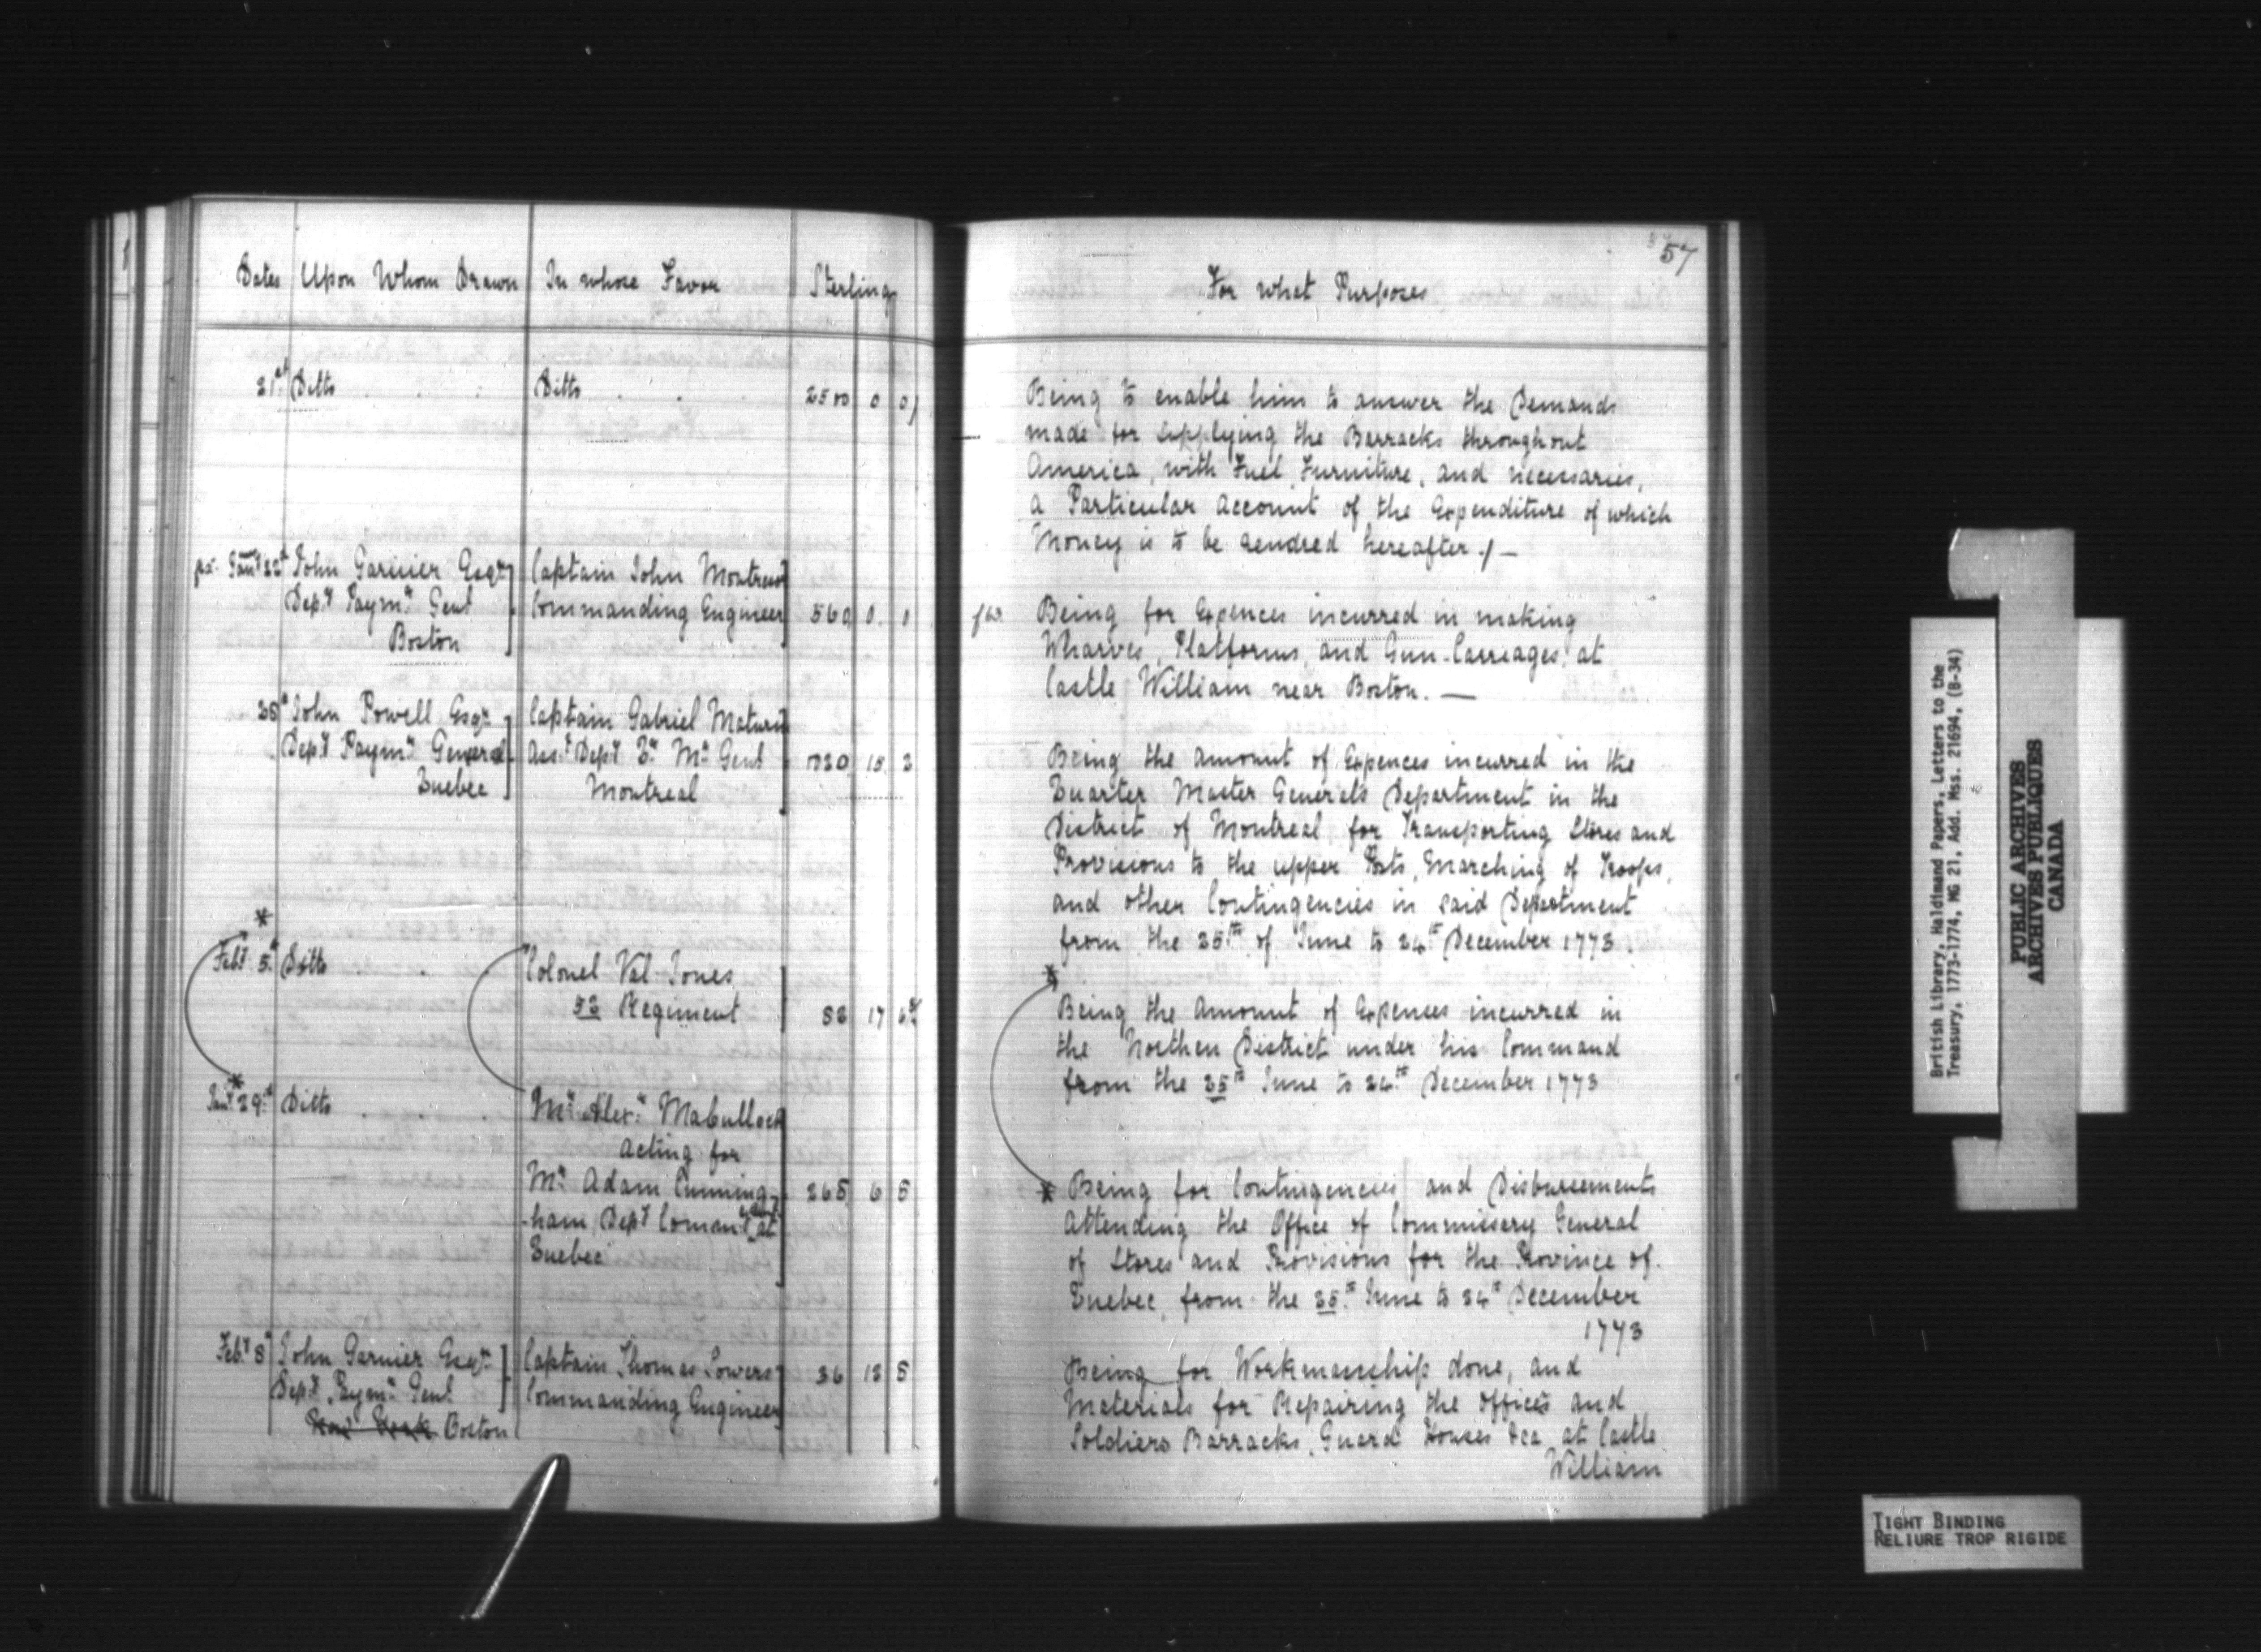 57
Dates Upon Whom Drawn In whose Favor Sterling
For what Purposes
21st Ditto . . . Ditto . . 2500 0 0
Being to enable him to answer the Demands
made for supplying the Barracks throughout
America, with Fuel Furniture, and necessaries,
a Particular Account of the Expenditure of which
Money is to be rendred hereafter./—
Jany 22d John Garnier Esqr Captain John Montresor
Depy Paymr Genl Commanding Engineer 560 0 1
Boston
Being for Expences incurred in making
Wharves, Platforms, and Gun-Carreages, at
Castle William near Boston. —
John Powell Esqr Captain Gabriel Maturin
Depy Paymr General Asst Depy Q. Mr Genl
Quebec Montreal
Being the Amount of Expences incurred in the
Quarter Master General's Department in the
District of Montreal, for Transporting Stores and
Provisions to the upper Posts, Marching of Troops,
and other Contingencies in said Department
from the 25th of June to 24th December 1773.
*
Feby 5th Ditto . . . Colonel Val Jones
52 Regiment 17
*
Being the Amount of Expences incurred in
the Northen District under his Command
from the 25th June to 24th December 1773
*
Jany 29th Ditto . . . Mr Alexr Maccullock
Acting for
Mr Adam Cunning- 268 6 8
-ham, Depy at
Quebec
* Being for Contingencies and Disbursements
Attending the Office of Commissary General
of Stores and Provisions for the Province of
Quebec, from the 25th June to 24th December
1773
Feby 8th John Garnier Esqr Captain Thomas Sowers
Depy Paymr Genl Commanding Engineer
New York Boston
Being for Workmanship done, and
Materials for Repairing the Offices and
Soldiers Barracks, Guard Houses &ca at Castle
William
British Library, Haldimand Papers, Letters to the
Treasury, 1773-1774, MG 21, Add. Mss. 21694, (B-34)
PUBLIC ARCHIVES
ARCHIVES PUBLIQUES
CANADA
TIGHT BINDING
RELIURE TROP RIGIDE